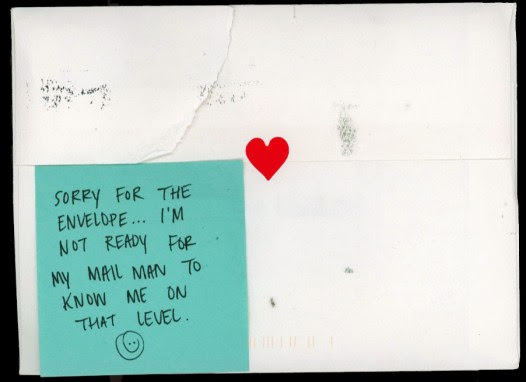 SORRY FOR THE
ENVELOPE... I'M
NOT READY FOR
MY MAIL MAN TO
KNOW ME ON
THAT LEVEL.